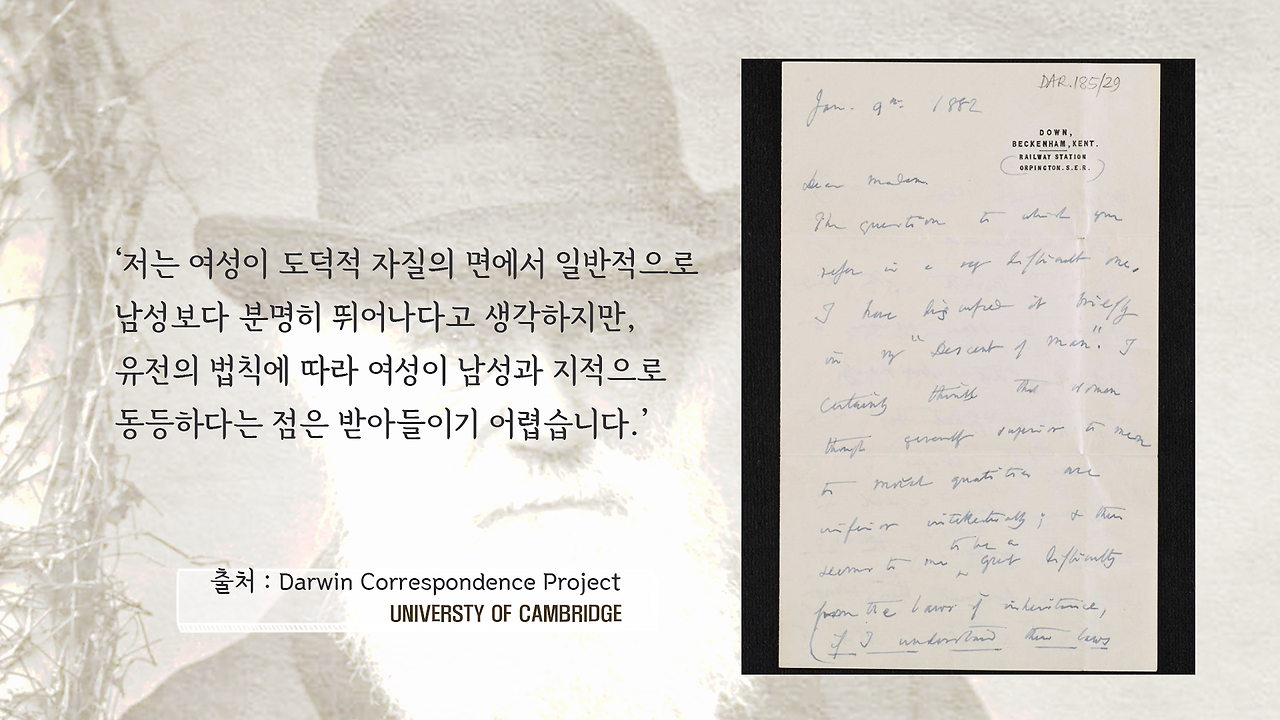 ‘저는 여성이 도덕적 자질의 면에서 일반적으로
남성보다 분명히 뛰어나다고 생각하지만,
유전의 법칙에 따라 여성이 남성과 지적으로
동등하다는 점은 받아들이기 어렵습니다.’
출처 : Darwin Correspondence Project
UNIVERSTY OF CAMBRIDGE
DAR.185/29
Jan. 9th. 1882
DOWN,
BECKENHAM, KENT.
RAILWAY STATION
ORPINGTON. S.E.R.
Dear Madam
The question to which you
refer is a very difficult one.
I have discussed it briefly
in my "Descent of Man". I
certainly think that women
though generally superior to men
to moral qualities are
inferior intellectually; & there
seems to me to be a great difficulty
from the laws of inheritance,
(if I understand these laws